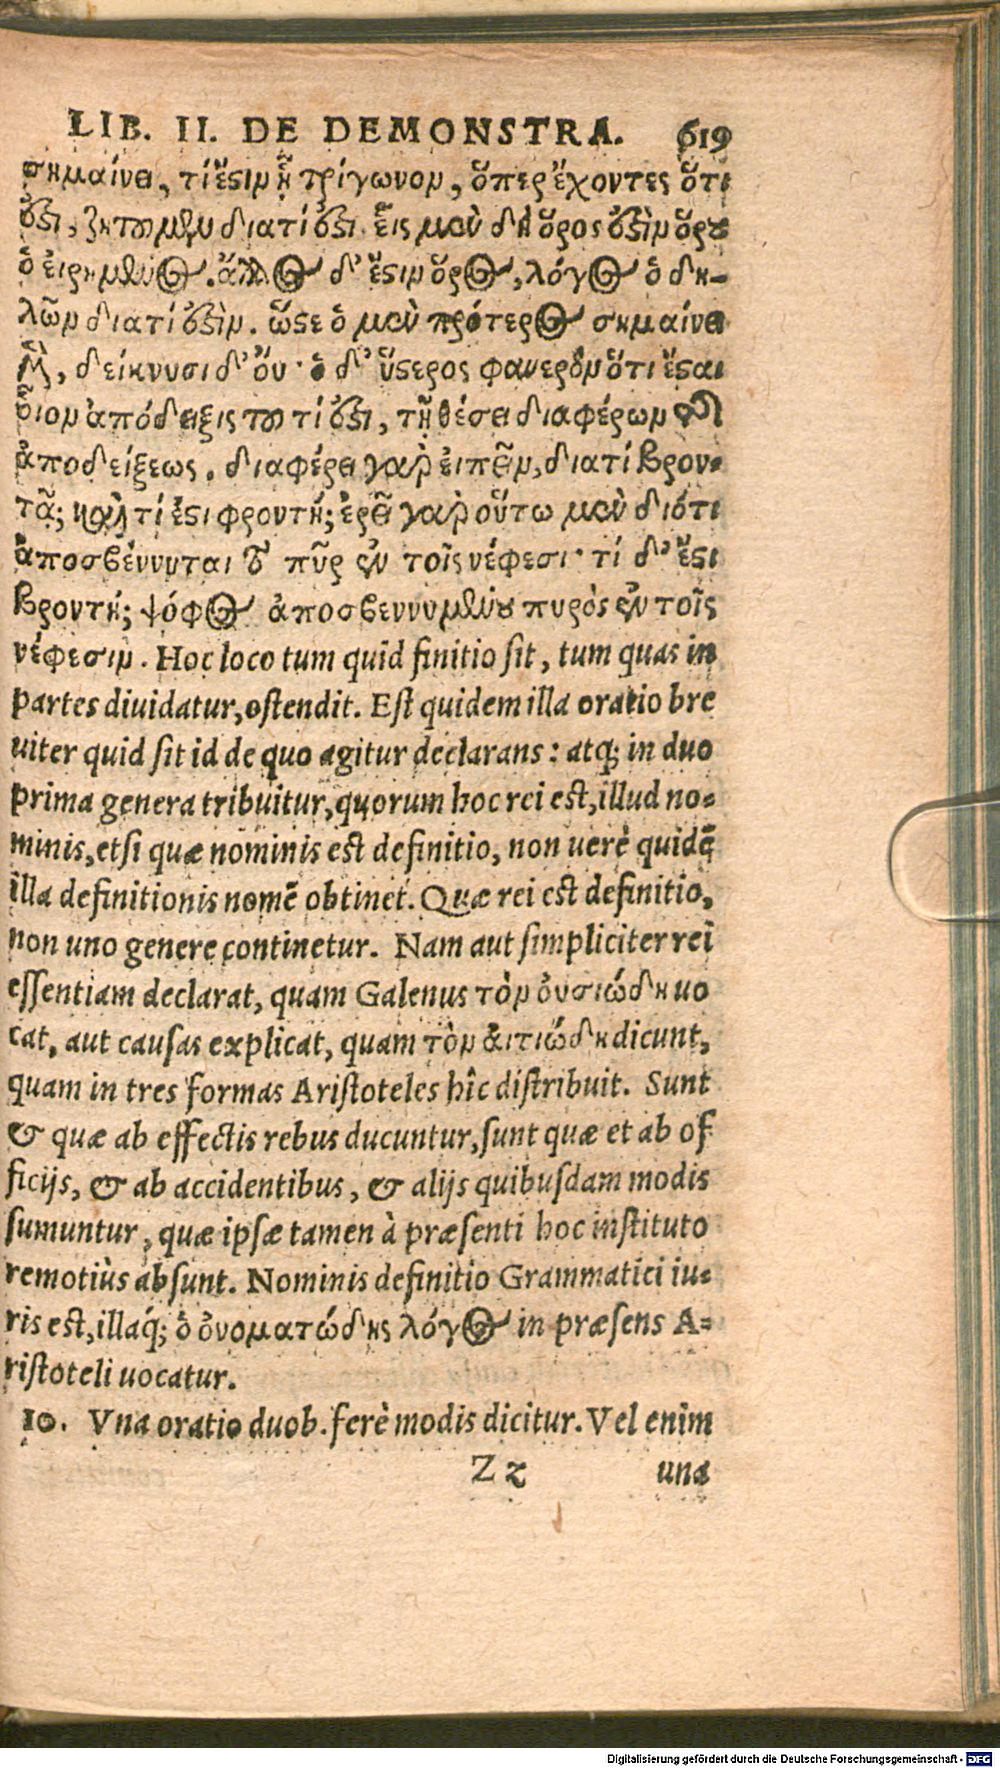 LIB. II. DE DEMONSTRA. 619
σημαίνει, τί ἔστιν ᾗ τρίγωνον, ὅπερ ἔχοντες ὅτι
ἔστι, ζητοῦμεν διατί ἔστι. εἷς μὲν δὴ ὅρος ἐστὶν ὅρου
ὁ εἰρημένος. ἄλλος δ' ἔστιν ὅρος, λόγος ὁ δη-
λῶν διατί ἐστίν. ὥστε ὁ μὲν πρότερος σημαίνει
μὲν, δείκνυσι δ' οὔ· ὁ δ' ὕστερος φανερὸν ὅτι ἔσται
οἷον ἀπόδειξις τοῦ τί ἔστι, τῇ θέσει διαφέρων τῆς
ἀποδείξεως. διαφέρει γὰρ εἰπεῖν, διατί βρον-
τᾷ; καὶ τί ἔστι βροντή; ἐρεῖ γὰρ οὕτω μὲν διότι
ἀποσβέννυται τὸ πῦρ ἐν τοῖς νέφεσι· τί δ' ἔστι
βροντή; ψόφος ἀποσβεννυμένου πυρὸς ἐν τοῖς
νέφεσιν. Hoc loco tum quid finitio sit, tum quas in
partes diuidatur, ostendit. Est quidem illa oratio bre
uiter quid sit id de quo agitur declarans: atq; in duo
prima genera tribuitur, quorum hoc rei est, illud no-
minis, etsi quæ nominis est definitio, non uerè quidē
illa definitionis nomē obtinet. Quæ rei est definitio,
non uno genere continetur. Nam aut simpliciter rei
essentiam declarat, quam Galenus τὸν οὐσιώδη uo
cat, aut causas explicat, quam τὸν αἰτιώδη dicunt,
quam in tres formas Aristoteles hîc distribuit. Sunt
& quæ ab effectis rebus ducuntur, sunt quæ et ab of
ficijs, & ab accidentibus, & alijs quibusdam modis
sumuntur, quæ ipsæ tamen à præsenti hoc instituto
remotiùs absunt. Nominis definitio Grammatici iu-
ris est, illaq́; ὁ ὀνοματώδης λόγος in præsens A-
ristoteli uocatur.
10. Vna oratio duob. ferè modis dicitur. Vel enim
Z z una
Digitalisierung gefördert durch die Deutsche Forschungsgemeinschaft - DFG